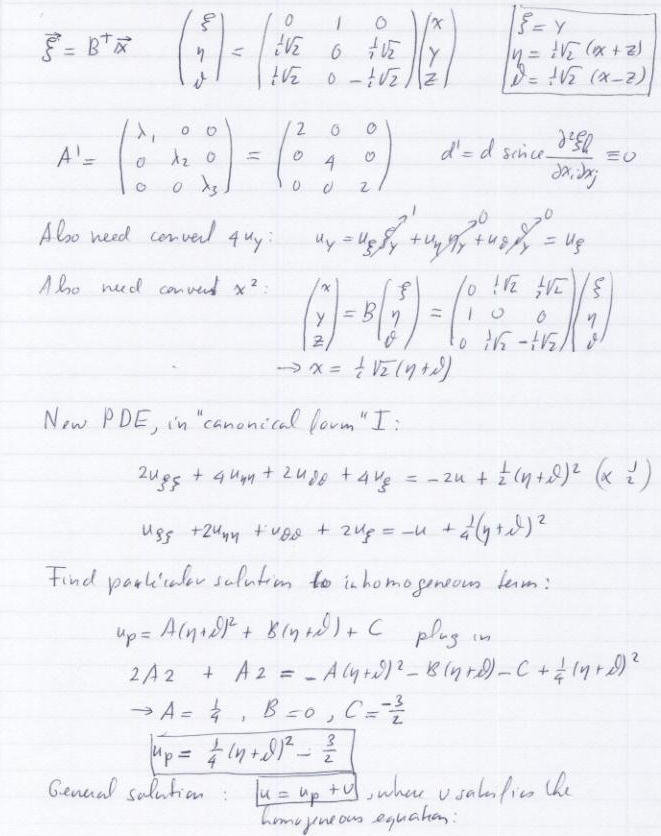 ξ⃗ = B⁺x⃗   (ξ η ϑ) = (0 1 0; ½√2 0 ½√2; ½√2 0 -½√2)(x y z)   ξ = y
η = ½√2 (x + z)
ϑ = ½√2 (x - z)
A' = (λ₁ 0 0; 0 λ₂ 0; 0 0 λ₃) = (2 0 0; 0 4 0; 0 0 2)   d' = d since ∂²ξₖ/∂xᵢ∂xⱼ ≡ 0
Also need convert 4u_y: u_y = u_ξ ξ_y¹ + u_η η_y⁰ + u_ϑ ϑ_y⁰ = u_ξ
Also need convert x²: (x y z) = B (ξ η ϑ) = (0 ½√2 ½√2; 1 0 0; 0 ½√2 -½√2)(ξ η ϑ)
→ x = ½√2 (η + ϑ)
New PDE, in "canonical form" I:
2u_ξξ + 4u_ηη + 2u_ϑϑ + 4u_ξ = -2u + ½(η + ϑ)² (× ½)
u_ξξ + 2u_ηη + u_ϑϑ + 2u_ξ = -u + ¼(η + ϑ)²
Find particular solution to inhomogeneous term:
u_p = A(η + ϑ)² + B(η + ϑ) + C plug in
2A2 + A2 = -A(η + ϑ)² - B(η + ϑ) - C + ¼(η + ϑ)²
→ A = ¼, B = 0, C = -3/2
u_p = ¼(η + ϑ)² - 3/2
General solution: u = u_p + v, where v satisfies the
homogeneous equation: